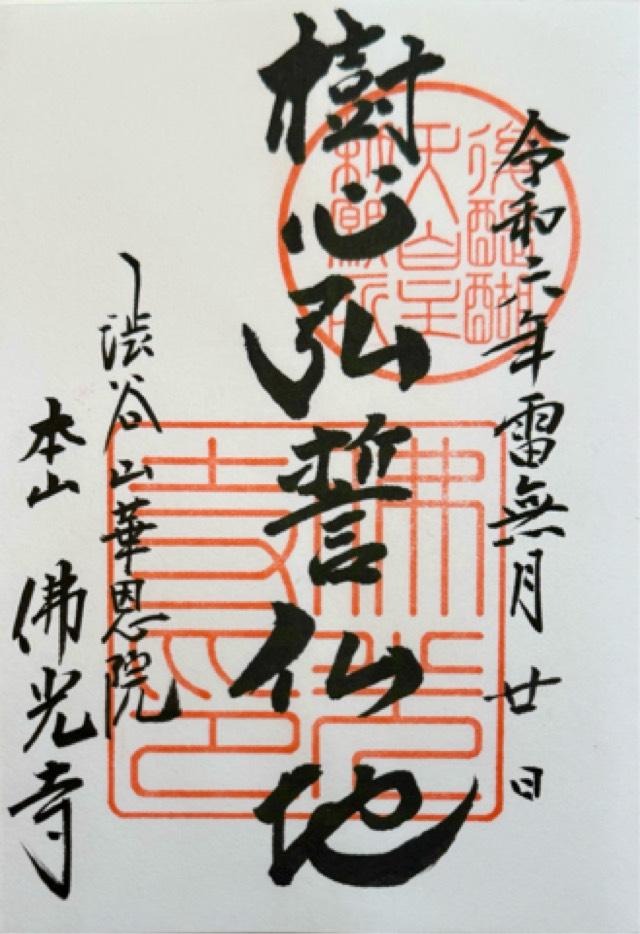 令和六年雷無月廿日
後醍醐
天皇
勅願所
樹心弘誓仏地
佛光
寺印
渋谷山華恩院
本山 佛光寺